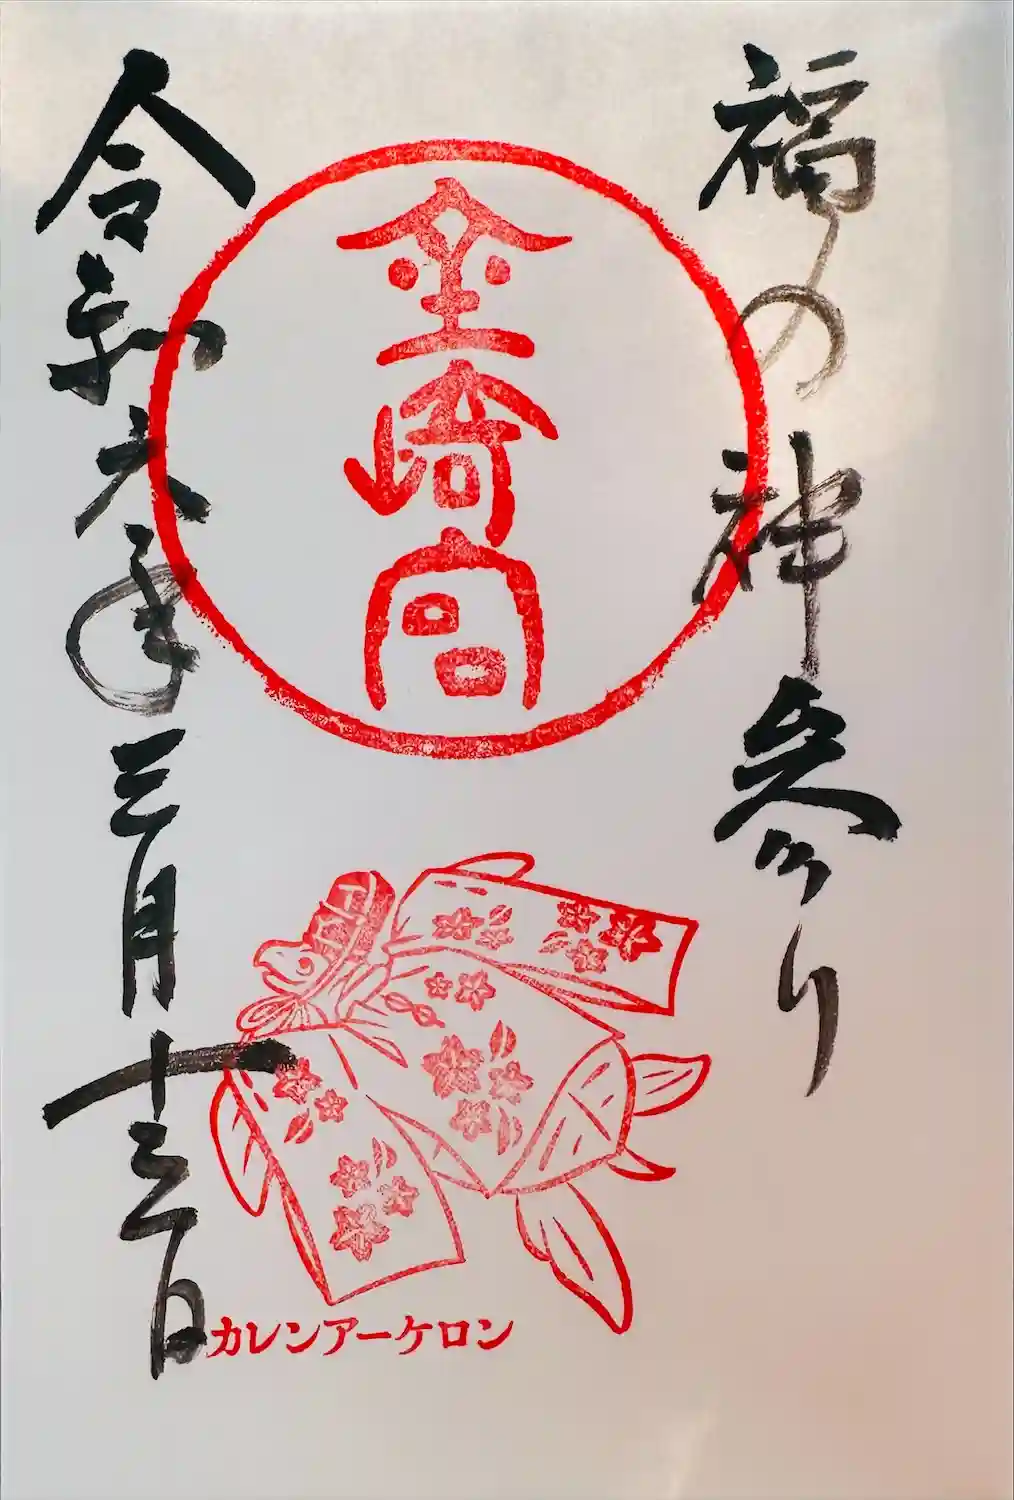 福の神参り
金崎宮
令和六年三月十三日
カレンアーケロン